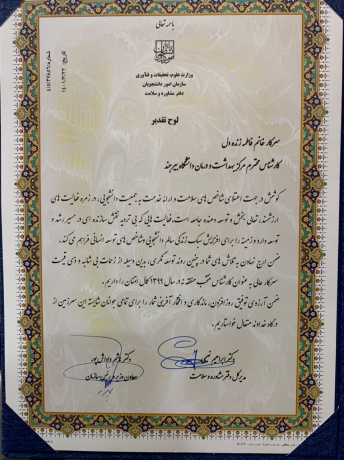 باسمه تعالی
تاریخ: ۱۴۰۱/۳/۲۲
شماره: ۴/۴۲۷۸۵۶
وزارت علوم، تحقیقات و فناوری
سازمان امور دانشجویان
دفتر مشاوره و سلامت
لوح تقدیر
سرکار خانم فاطمه زنده دل
کارشناس محترم مرکز بهداشت و درمان دانشگاه بیرجند
کوشش در جهت اعتلای شاخص های سلامت و ارائه خدمت به جمعیت دانشجویی، در زمره فعالیت های
ارزشمند، تعالی بخش و توسعه دهنده جامعه است. فعالیت هایی که بی تردید نقش سازنده ای در مسیر رشد و
توسعه دارد و زمینه را برای افزایش سبک زندگی سالم دانشجویی و شاخص های توسعه انسانی فراهم می کند.
ضمن ارج نهادن به تلاش های شما در چنین روند توسعه نگری، بدین وسیله از زحمات بی شائبه و ذی قیمت
سرکار عالی به عنوان کارشناس منتخب منطقه نه در سال ۱۳۹۹ کمال امتنان را داریم.
ضمن آرزوی توفیق روز افزون، ماندگاری و افتخار آفرینی شما را برای تمامی جوانان شایسته این سرزمین از
درگاه خداوند متعال خواستاریم.
دکتر ابراهیم
مدیر کل دفتر مشاوره و سلامت
دکتر هاشم داداش پور
معاون وزیر و رئیس سازمان